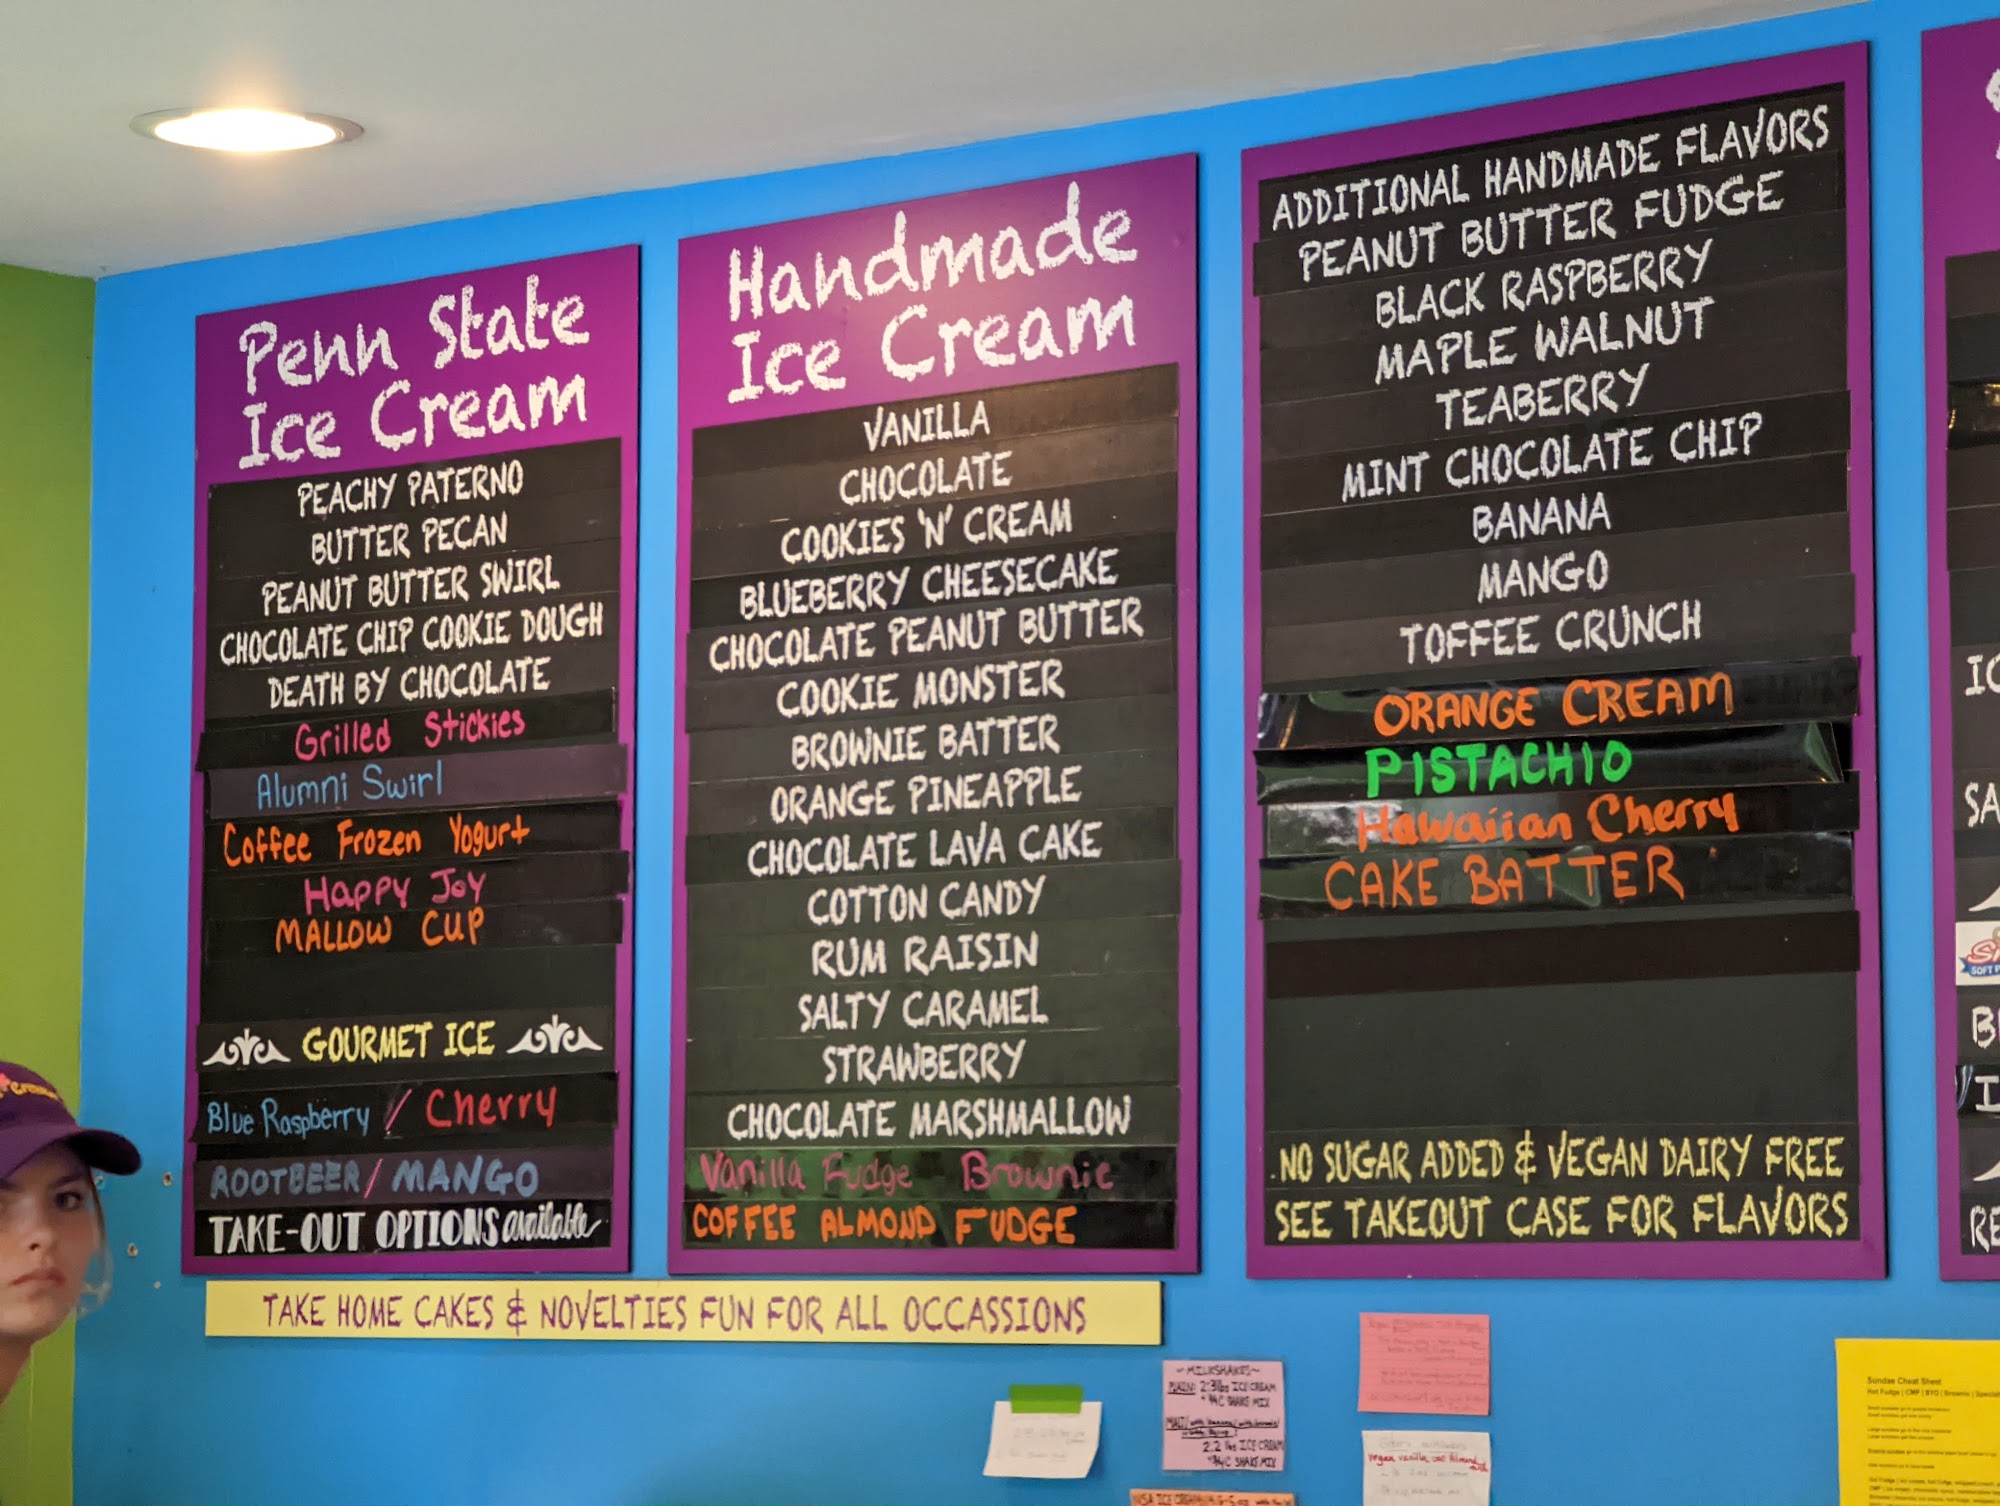 Penn State
Ice Cream
PEACHY PATERNO
BUTTER PECAN
PEANUT BUTTER SWIRL
CHOCOLATE CHIP COOKIE DOUGH
DEATH BY CHOCOLATE
Grilled Stickies
Alumni Swirl
Coffee Frozen Yogurt
Happy Joy
MALLOW CUP
GOURMET ICE
Blue Raspberry / Cherry
ROOTBEER / MANGO
TAKE-OUT OPTIONS available
Handmade
Ice Cream
VANILLA
CHOCOLATE
COOKIES 'N' CREAM
BLUEBERRY CHEESECAKE
CHOCOLATE PEANUT BUTTER
COOKIE MONSTER
BROWNIE BATTER
ORANGE PINEAPPLE
CHOCOLATE LAVA CAKE
COTTON CANDY
RUM RAISIN
SALTY CARAMEL
STRAWBERRY
CHOCOLATE MARSHMALLOW
Vanilla Fudge Brownie
COFFEE ALMOND FUDGE
ADDITIONAL HANDMADE FLAVORS
PEANUT BUTTER FUDGE
BLACK RASPBERRY
MAPLE WALNUT
TEABERRY
MINT CHOCOLATE CHIP
BANANA
MANGO
TOFFEE CRUNCH
ORANGE CREAM
PISTACHIO
Hawaiian Cherry
CAKE BATTER
NO SUGAR ADDED & VEGAN DAIRY FREE
SEE TAKEOUT CASE FOR FLAVORS
TAKE HOME CAKES & NOVELTIES FUN FOR ALL OCCASSIONS
~MILKSHAKES~
2.2 lbs ICE CREAM
Sundae Cheat Sheet
Hot Fudge | CMP | BYO | Brownie |